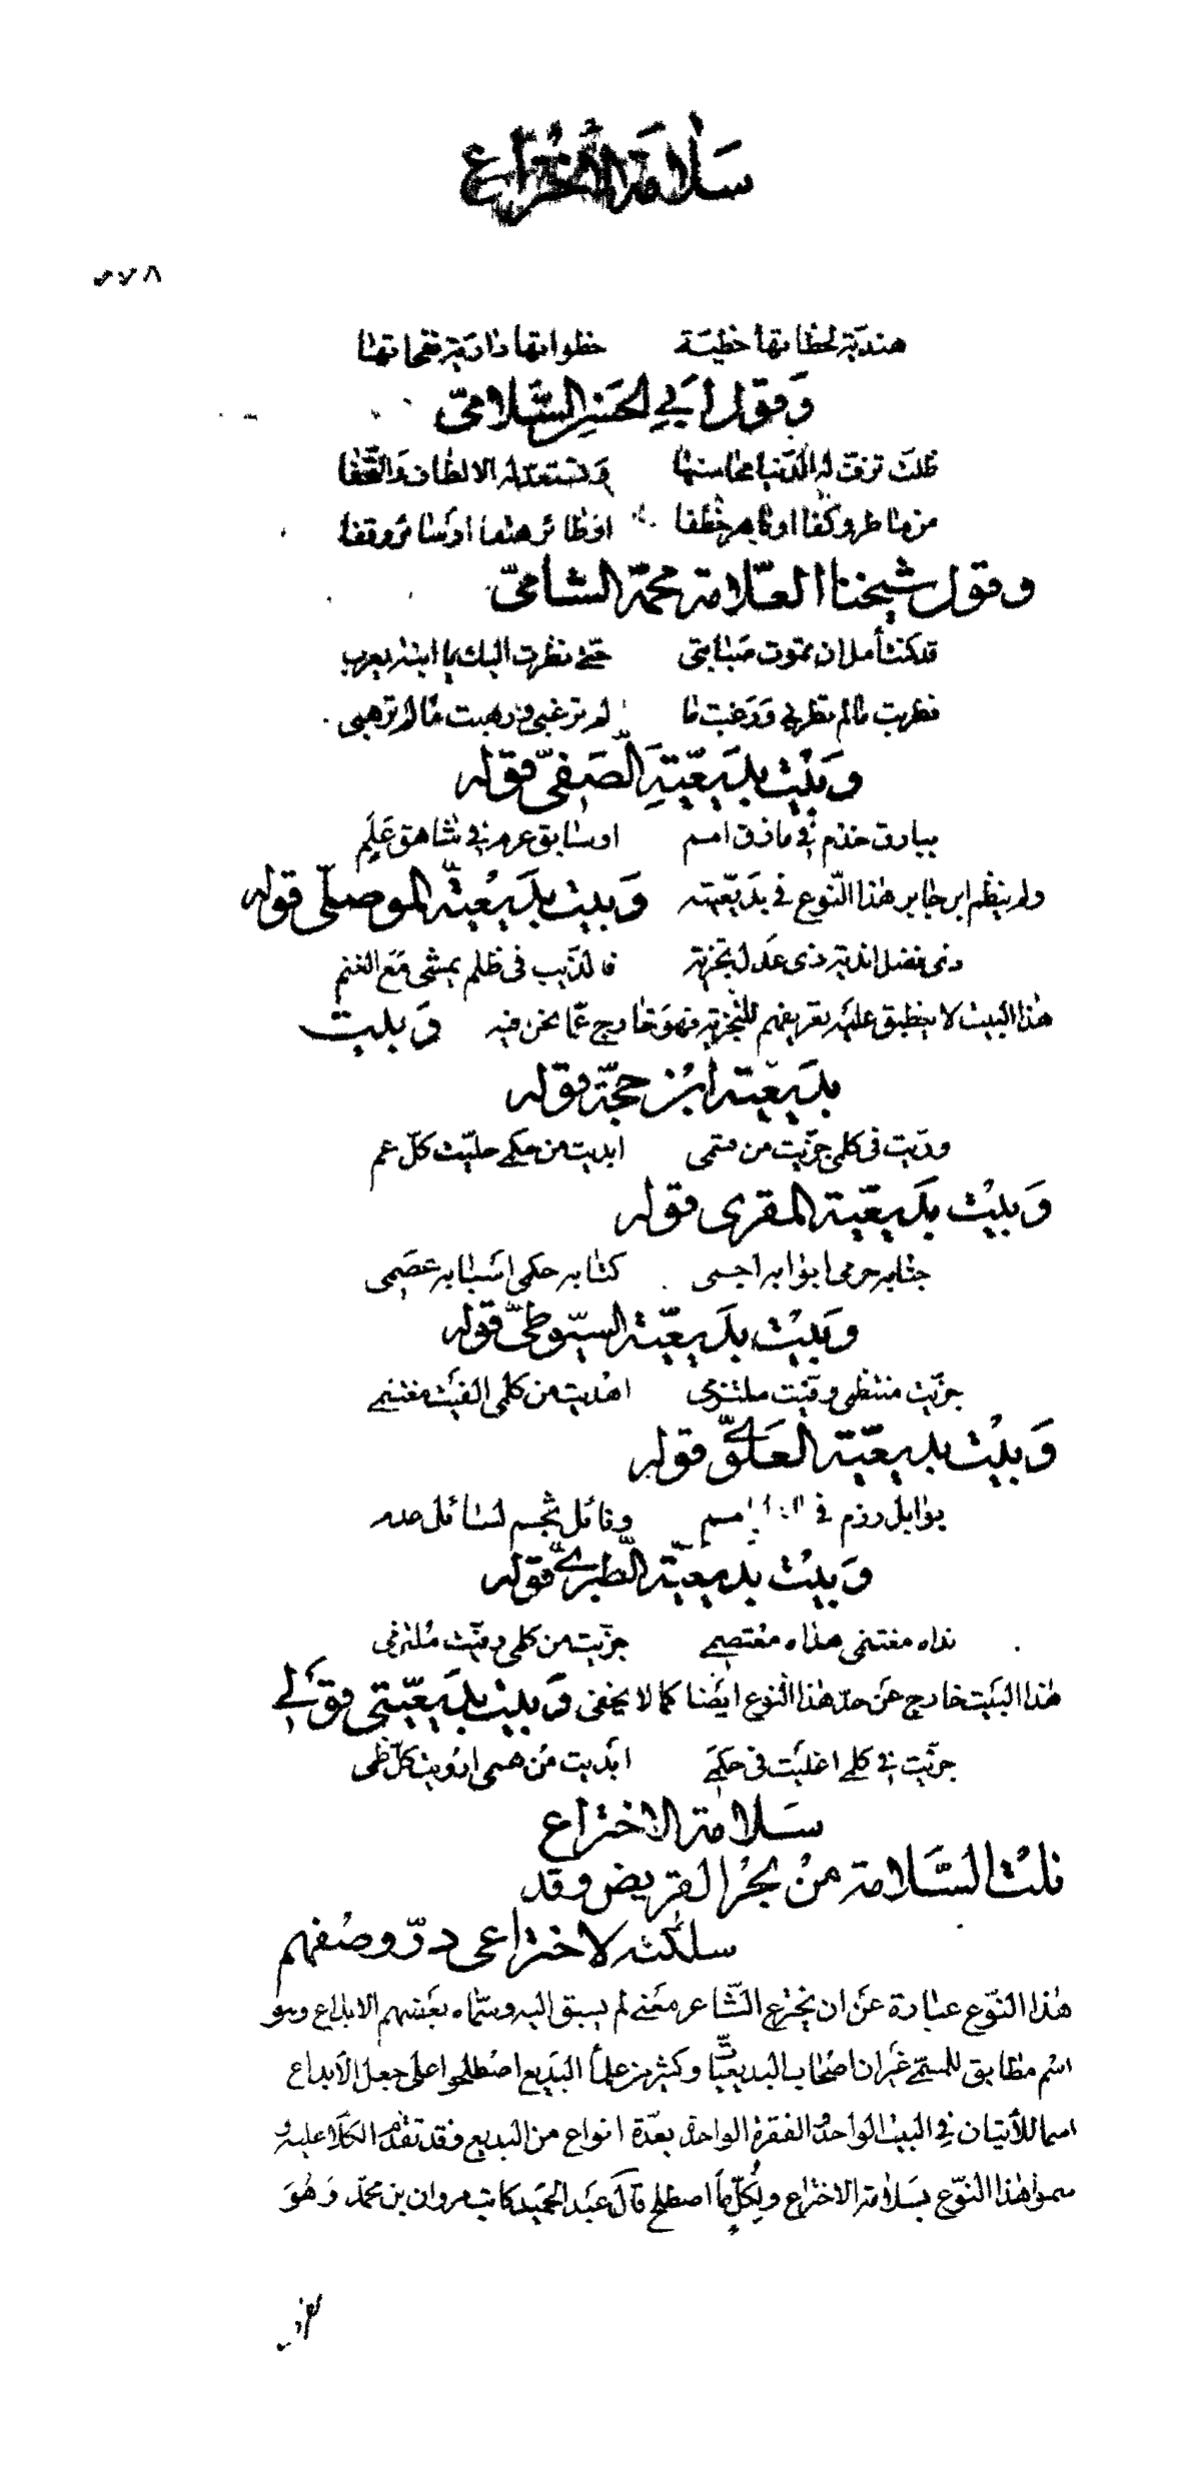 سلامة الاختراع
٦٧٨
هندية لحظاتها خطية خطواتها دارية نفحاتها
وقول أبي الحسن السلامي
ظلت تزف له الدنيا محاسنها وتستعد له الالطاف والتحفا
من عارض وكفا او بارق خطفا او طائر هتفا او سائر وقفا
وقول شيخنا العلامة محمد الشامي
قد كنت أمل ان تموت صبابتي حتى نظرت اليك يا ابنة يعرب
فطربت مالم تطربي ورغبت ما لم ترغبي ورهبت مالم ترهبي
وبيت بديعية الصفي قوله
ببارق خذم في مازق امم او سابق عرم في شاهق علم
ولم ينظم ابن جابر هذا النوع في بديعيته وبيت بديعية الموصلي قوله
ذي فضل اندية ذي عدل تجزية فالذيب في ظلم يمشي مع الغنم
هذا البيت لا ينطبق عليه تعريفهم للتجزية فهو خارج عما نحن فيه وبيت
بديعية ابن حجة قوله
وريت في كلمي جزيت من قسمي ابديت من حكمي جليت كل عم
وبيت بديعية المقري قوله
جنابه حرمي ابوابه اجمي كتابه حكمي اسبابه عصمي
وبيت بديعية السيوطي قوله
جزيت منتظمي وفيت ملتزمي اهديت من كلمي الفيت مغتنمي
وبيت بديعية العلوي قوله
بوابل رذم في ونائل شجم لسائل عدم
وبيت بديعية الطبري قوله
نداه مغتنمي هداه معتصمي جزيت من كلمي وفيت ملتزمي
هذا البيت خارج عن حد هذا النوع ايضا كما لا يخفى وبيت بديعيتي قولي
جزيت في كلمي اغليت في حكمي ابديت من هممي ارويت كل ظمي
سلامة الاختراع
نلت السلامة من بحر القريض وقد
سلكته لاختراعي در وصفهم
هذا النوع عبارة عن ان يخترع الشاعر معنى لم يسبق اليه وسماه بعضهم الابداع وهو
اسم مطابق للمسمى غير ان اصحاب البديعيات وكثير من علماء البديع اصطلحوا على جعل الابداع
اسما للأتيان في البيت الواحد والفقرة الواحدة بعدة انواع من البديع وقد تقدم الكلام عليه و
سموا هذا النوع بسلامة الاختراع ولكل ما اصطلح قال عبد الحميد كاتب مروان بن محمد وهو